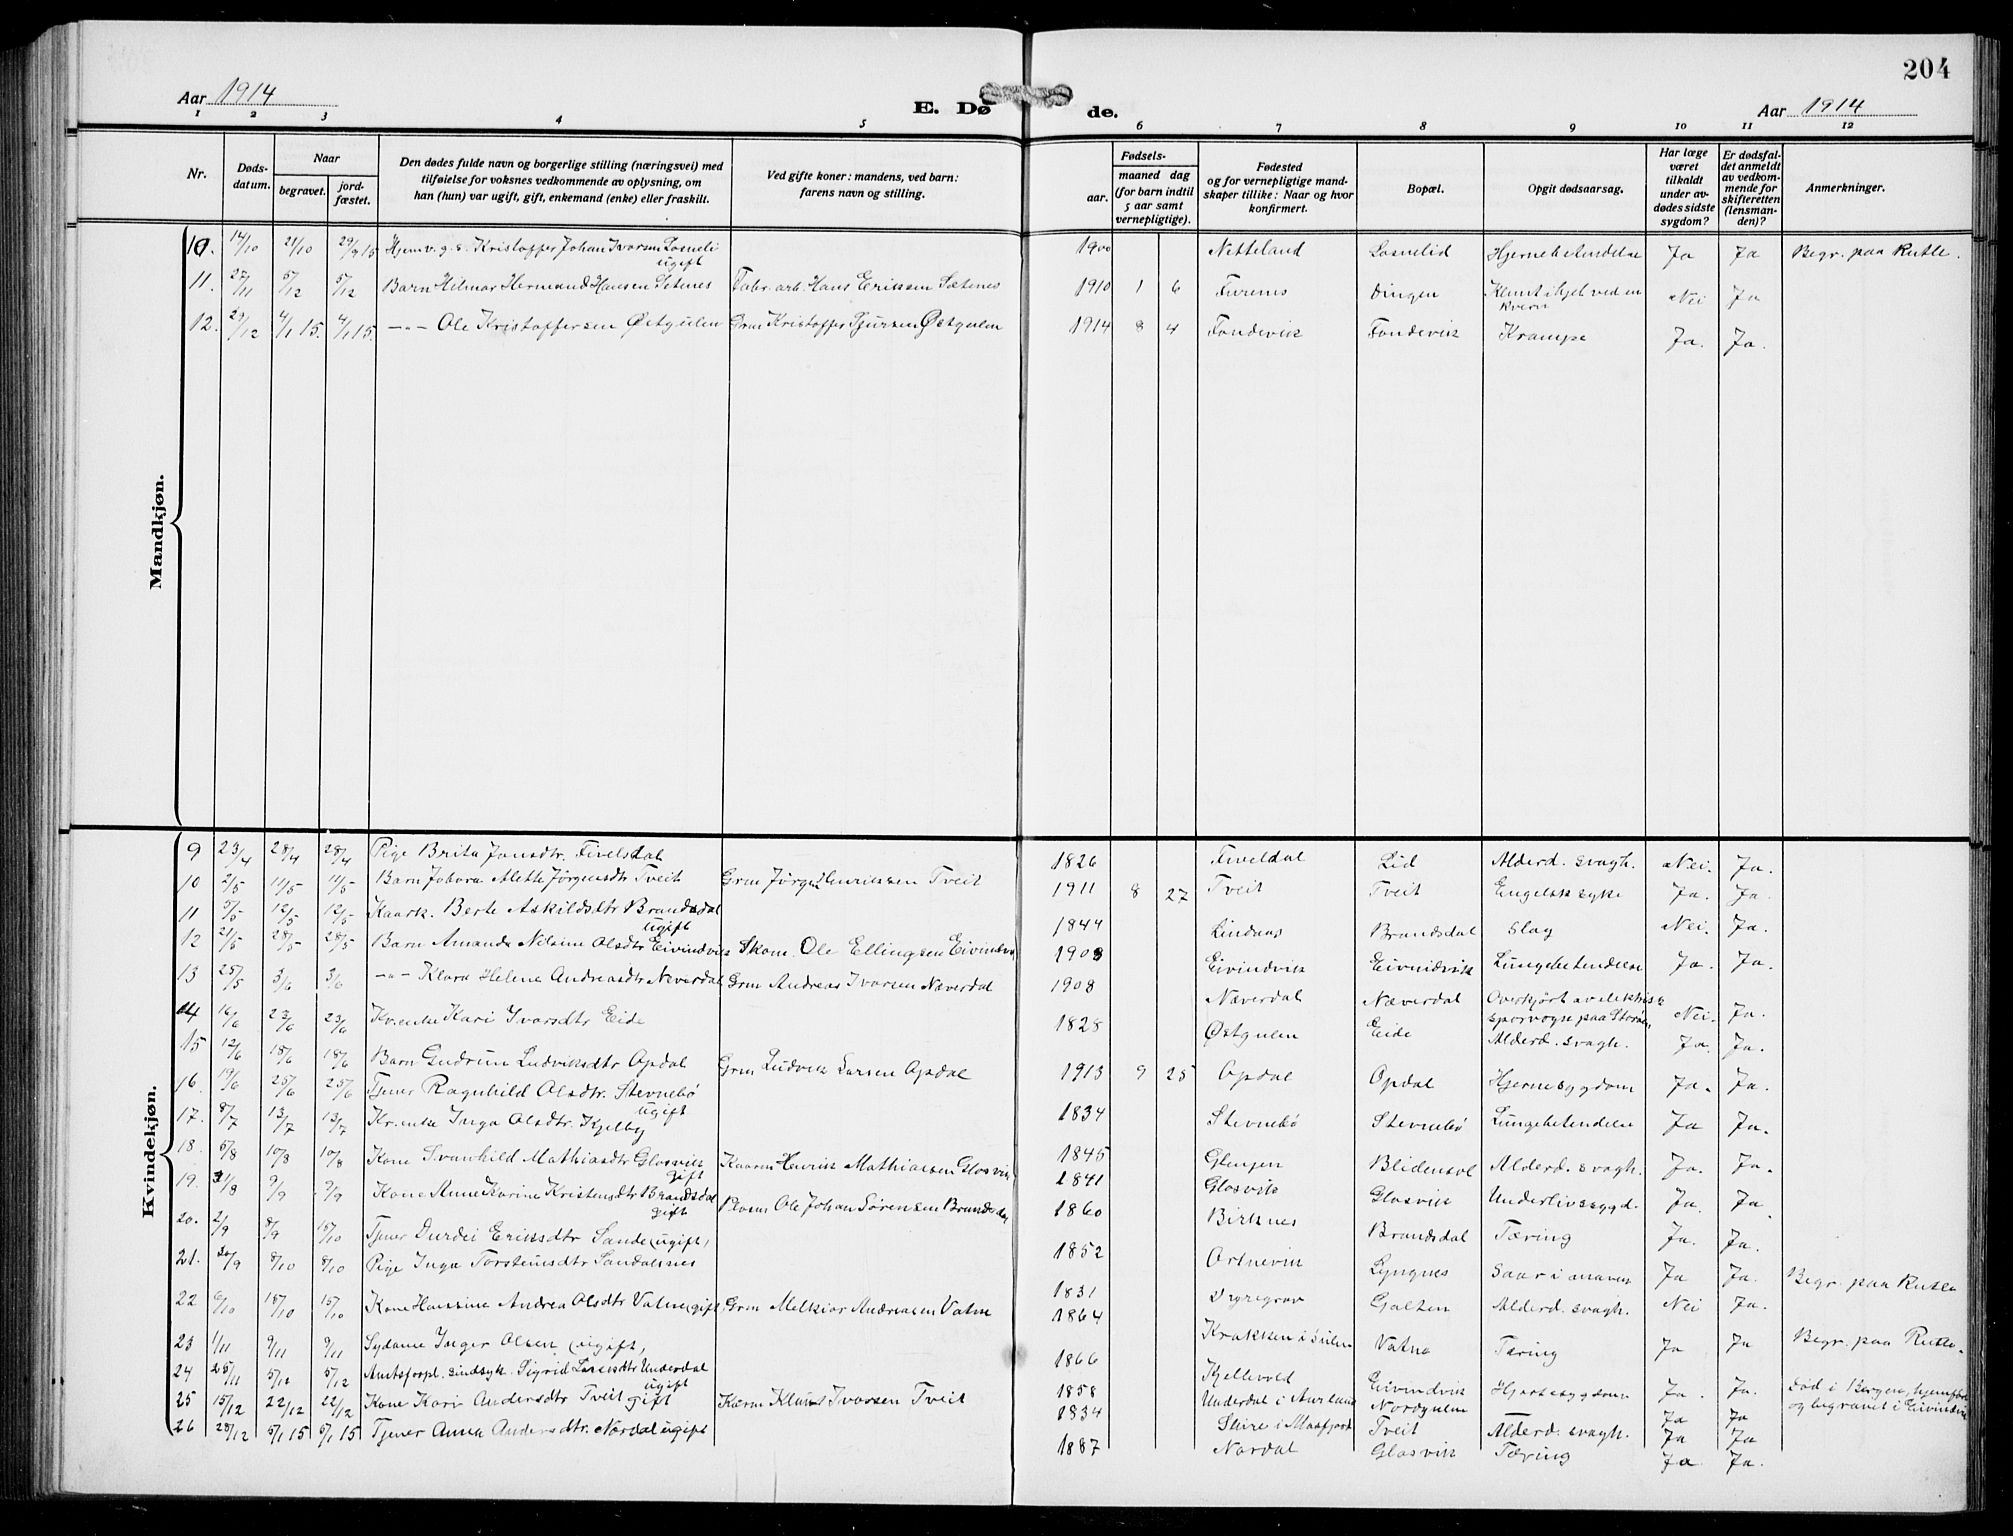 204
Aar 1914
E. Døde.
Aar 1914
1 2 3 4 5 6 7 8 9 10 11 12
Nr. | Dødsdatum. | Naar begravet. | jordfæstet. | Den dødes fulde navn og borgerlige stilling (næringsvei) med tilføielse for voksnes vedkommende av oplysning, om han (hun) var ugift, gift, enkemand (enke) eller fraskilt. | Ved gifte koner: mandens, ved barn: farens navn og stilling. | Fødsels- aar. maaned dag (for barn indtil 5 aar samt vernepligtige). | Fødested og for vernepligtige mandskaper tillike: Naar og hvor konfirmert. | Bopæl. | Opgit dødsaarsag. | Har læge været tilkaldt under avdødes sidste sygdom? | Er dødsfaldet anmeldt av vedkommende for skifteretten (lensmanden)? | Anmerkninger.
Mandkjøn.
10. 14/10 21/10 29/9 15 Hjemv. g. s. Kristoffer Johan Ivarsen Losneli ugift 1900 Netteland Losnelid Hjernebetændelse Ja Ja Begr. paa Rutle.
11. 27/11 5/12 5/12 Barn Hilmar Hermand Hansen Sætenes Fabr. arb. Hans Eriksen Sætenes 1910 1 6 Furenes Dingen Klemt ihjel ved en kvern Nei Ja
12. 29/12 4/1 15. 4/1 15. -"- Ole Kristoffersen Østgulen Grm Kristoffer Sjursen Østgulen 1914 8 4 Fondevik Fondevik Krampe Ja. Ja.
Kvindekjøn.
9 23/4 28/4 28/4 Pige Brita Jonsdtr. Fivelsdal 1826 Fiveldal Lid Alderd. svagh. Nei. Ja.
10 2/5 11/5 11/5 Barn Johora Alette Jørgensdtr Tveit Grm Jørgen Henriksen Tveit 1911 8 27 Tveit Tveit Engelsk syke Ja. Ja.
11 5/5 12/5 12/5 Kaark. Berte Askildsdtr Brandsdal ugift 1844 Lindaas Brandsdal Slag Nei. Ja.
12 21/5 28/5 28/5 Barn Amanda Nilsine Olsdtr Eivindvik Skom. Ole Ellingsen Eivindvik 1908 Eivindvik Eivindvik Lungebetændelse Ja. Ja.
13 25/5 3/6 3/6 -"- Klara Helene Andreasdtr Næverdal Grm Andreas Ivarsen Næverdal 1908 Næverdal Næverdal Overkjørt av elektrisk sporvogn paa Storøen Nei. Ja.
14 16/6 23/6 23/6 Kv.enke Kari Ivarsdtr Eide 1828 Østgulen Eide Alderd. svagh. Ja. Ja.
15 12/6 18/6 18/6 Barn Gudrun Ludviksdtr Opdal Grm Ludvik Larsen Opdal 1913 9 25 Opdal Opdal Hjernesygdom Ja. Ja.
16. 19/6 25/6 25/6 Tjener Ragnhild Olsdtr. Stevnebø ugift 1834 Stevnebø Stevnebø Lungebetendelse Ja Ja.
17. 8/7 13/7 13/7 Kv.enke Inga Olsdtr. Kjelby 1845 Glenjen Blidensol Alderd. svagh. Ja. Ja.
18. 5/8 10/8 10/8 Kone Svanhild Mathiasdtr Glosvik gift Kaarm Henrik Mathiassen Glosvik 1841 Glosvik Glosvik Underlivssygd. Ja. Ja.
19. 31/8 9/9 9/9 Kone Anne Karine Kristensdtr Brandsdal gift Plasm Ole Johan Sørensen Brandsdal 1860 Birknes Brandsdal Tæring Ja. Ja.
20. 2/9 8/9 18/10 Tjener Durdei Eriksdtr Sande (ugift) 1852 Ortnevik Lyngnes Saar i maven Ja Ja. Begr. paa Rutle
21. 30/9 8/10 8/10 Pige Inga Torsteinsdtr Sandalsnes 1831 Dyregrov Galten Alderd. svagh. Nei Ja.
22 6/10 18/10 18/10 Kone Hansina Andrea Olsdtr Vatne (gift) Grm Melkior Andreasen Vatne 1864 Krakken i Sulen Vatne Tæring Ja Ja Begr. paa Rutle.
23 1/11 9/11 9/11 Sydame Inger Olsen (ugift) 1866 Kjellevold Eivindvik Hjertesygdom Ja. Ja. død i Bergen, hjemført og begravet i Eivindvik
24 25/11 5/12 5/12 Amtsforpl. sindsyk. Sigrid Larsdtr Underdal ugift 1858 Underdal i Aurland Nordgulen Ja Ja
25 15/12 22/12 22/12 Kone Kari Andersdtr Tveit gift Kaarm Klaus Ivarsen Tveit 1834 Skire i Masfjord Tveit Alderd. svagh. Ja Ja
26 28/12 5/1 15 5/1 15 Tjener Anna Andersdtr. Nordal ugift 1887 Nordal Glosvik Tæring Ja Ja.